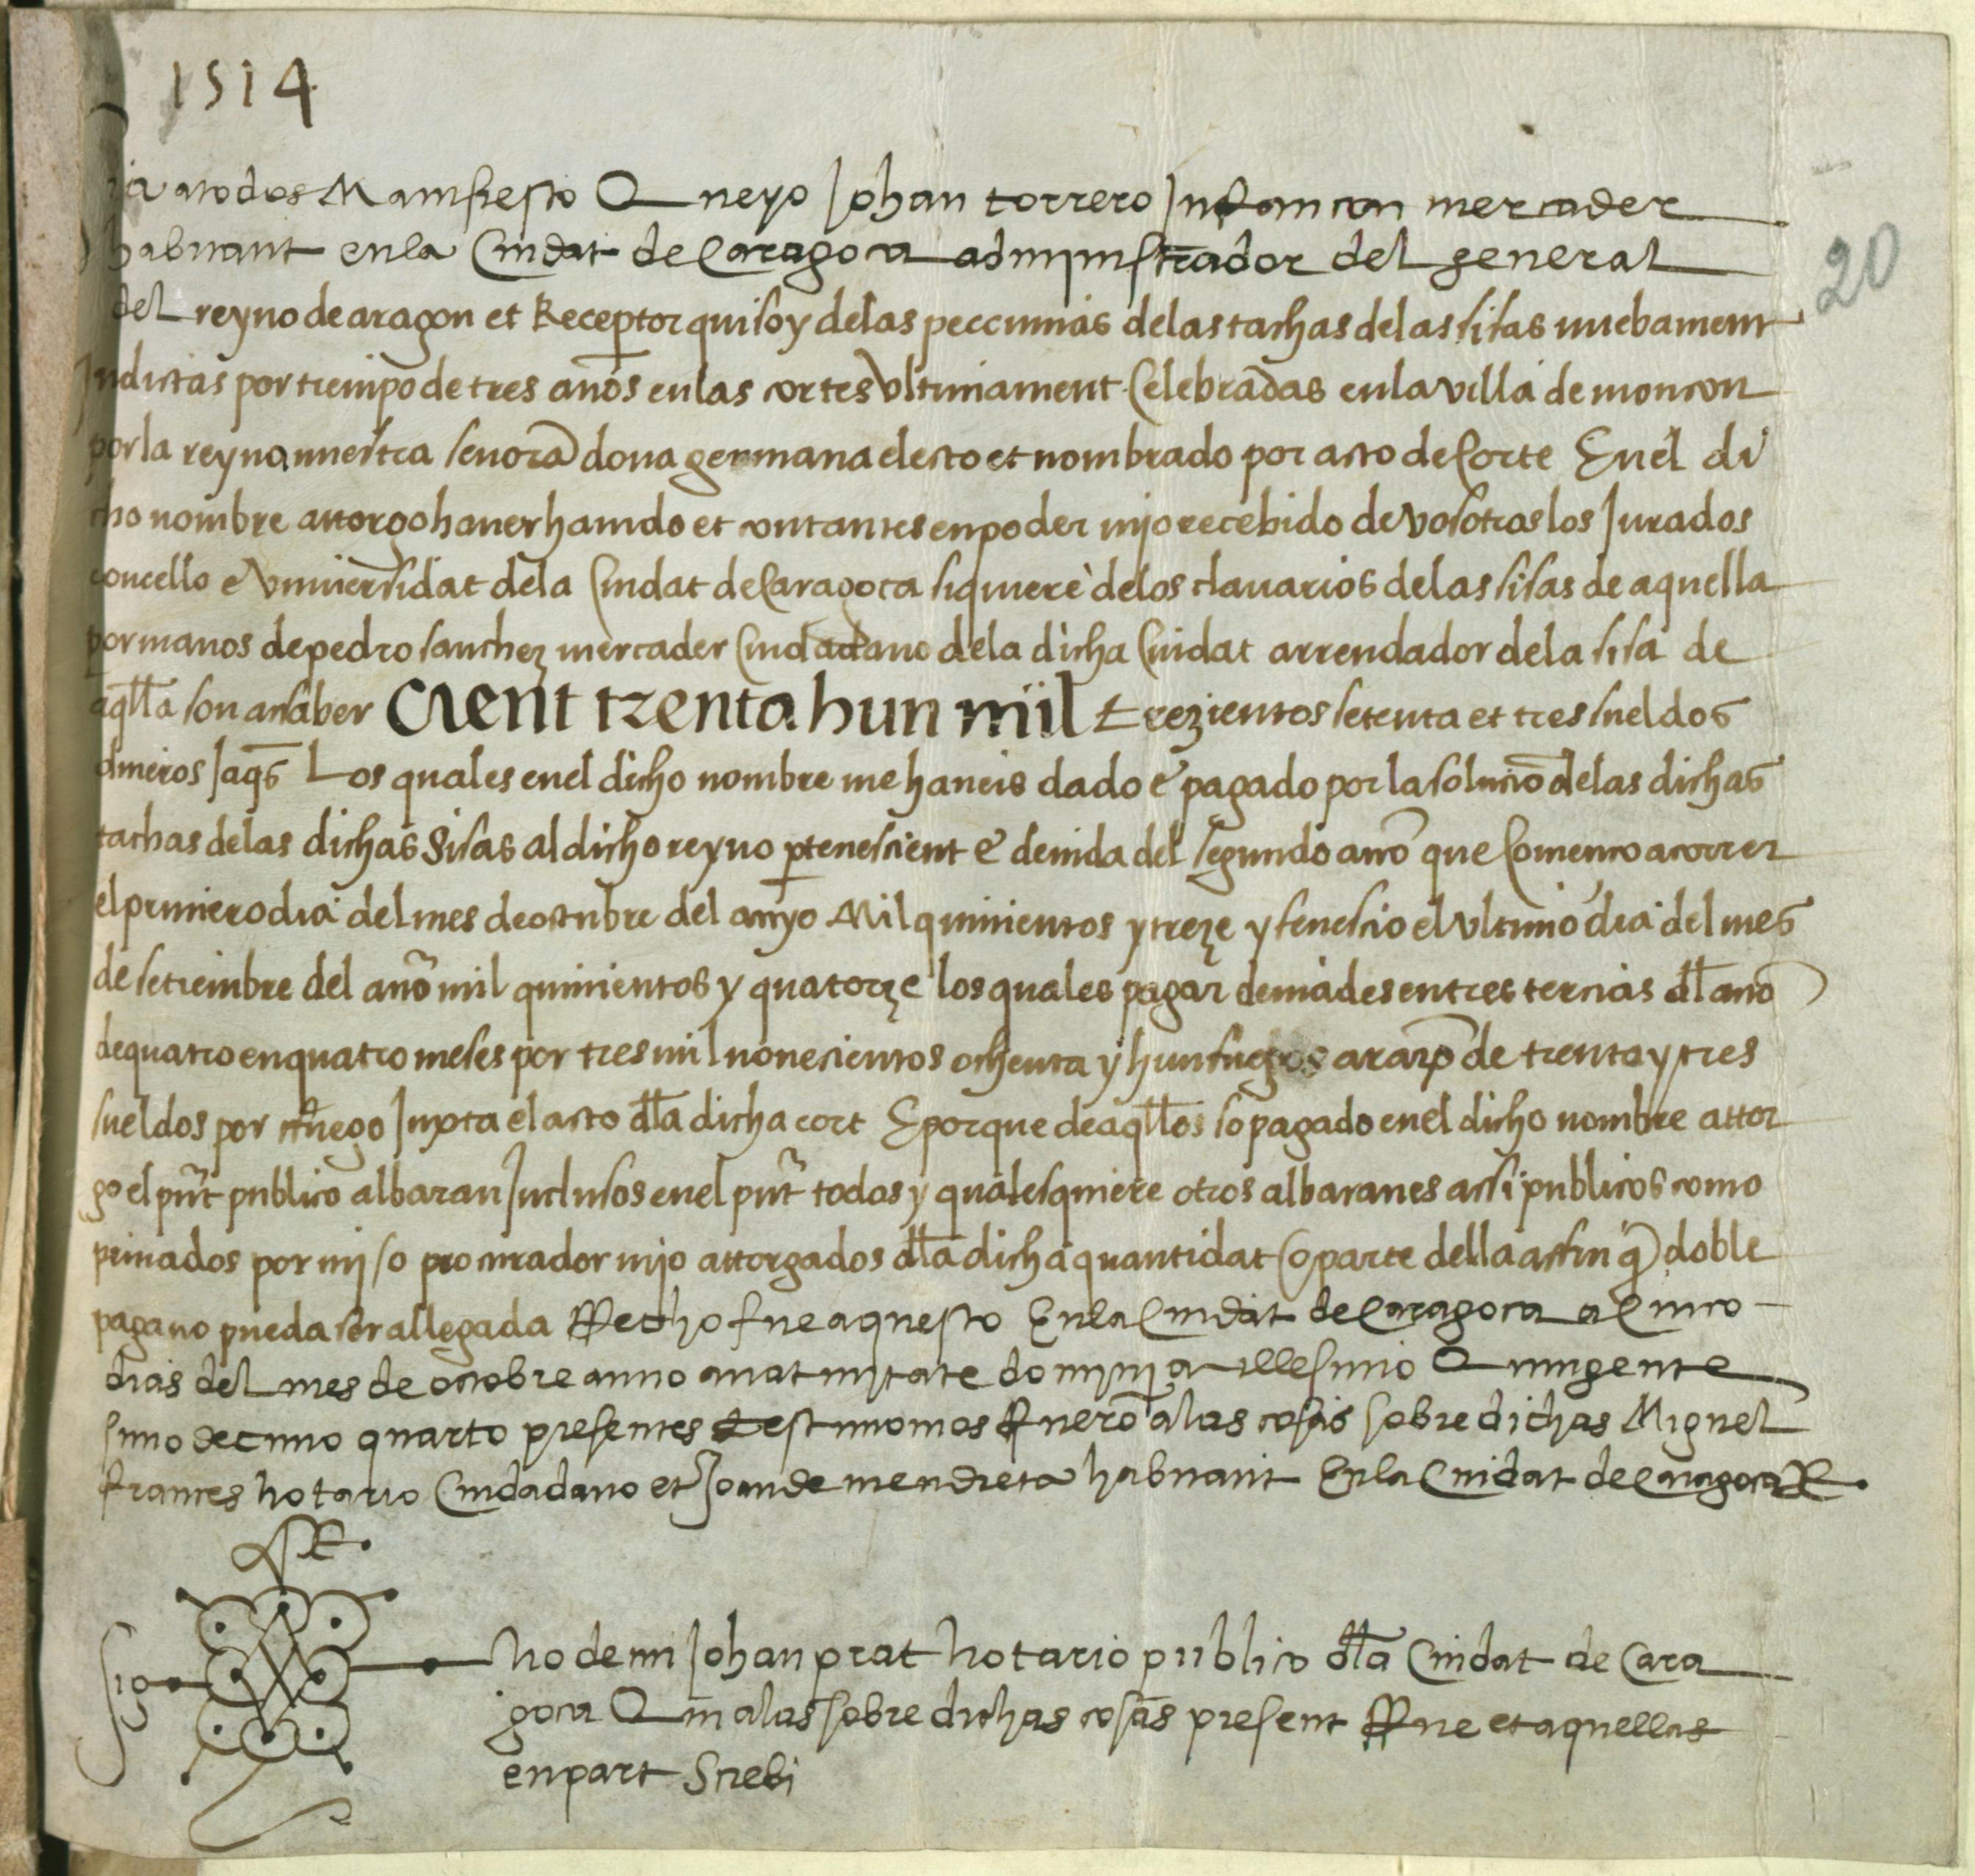 1514
20
ia a todos Manifiesto Que yo Johan torrero Infançon mercader
habitant en la Ciudat de Caragoça administrador del general
del reyno de aragon et Receptor qui soy de las peccunias de las tachas de las sisas nuebament
Indictas por tiempo de tres anos en las cortes Vltimament Celebradas en la villa de monçon
por la reyna nuestra senora dona germana electo et nombrado por acto de Corte En el di
cho nombre attorgo hauer hauido et contantes en poder mjo recebido de Vosotros los Jurados
concello e Vniuersidat de la Ciudat de Caragoça siquiere de los clauarios de las sisas de aquella
por manos de pedro sanchez mercader Ciudadano de la dicha Ciudat arrendador de la sisa de
aqlla son assaber Cient trenta hun mil trezientos setenta et tres sueldos
dineros Jaqs Los quales en el dicho nombre me haueis dado e pagado por la solucio de las dichas
tachas de las dichas Sisas al dicho reyno ptenescient e deuida del segundo ano que Començo a correr
el primero dia del mes de octubre del anyo Mil quinientos y treze y fenescio el Vltimo dia del mes
de setiembre del ano mil quinientos y quatorze los quales pagar deuiades en tres tercias dl ano
de quatro en quatro meses por tres mil nonecientos ochenta y hun fuegos a razo de trenta y tres
sueldos por fuego Juxta el acto dla dicha cort E porque de aqllos so pagado en el dicho nombre attor
go el pnt publico albaran Inclusos en el pnt todos y qualesquiere otros albaranes assi publicos como
priuados por mj so procurador mjo attorgados dla dicha quantidat (o parte della assin q) doble
paga no pueda ser allegada ffecho fue aquesto En la Ciudat de Caragoça a Cinco
dias del mes de octobre anno a natiujtate domini millesimo Quingente
simo decimo quarto presentes testimonios ffuero a las cosas sobredichas Miguel
frances notario Ciudadano et Joan de mendieta habitant En la Ciudat de Caragoça
Sig no de mi Johan prat notario publico dla Ciudat de Cara
goça Qui a las sobredichas cosas present ffue et aquellas
en part Screbi